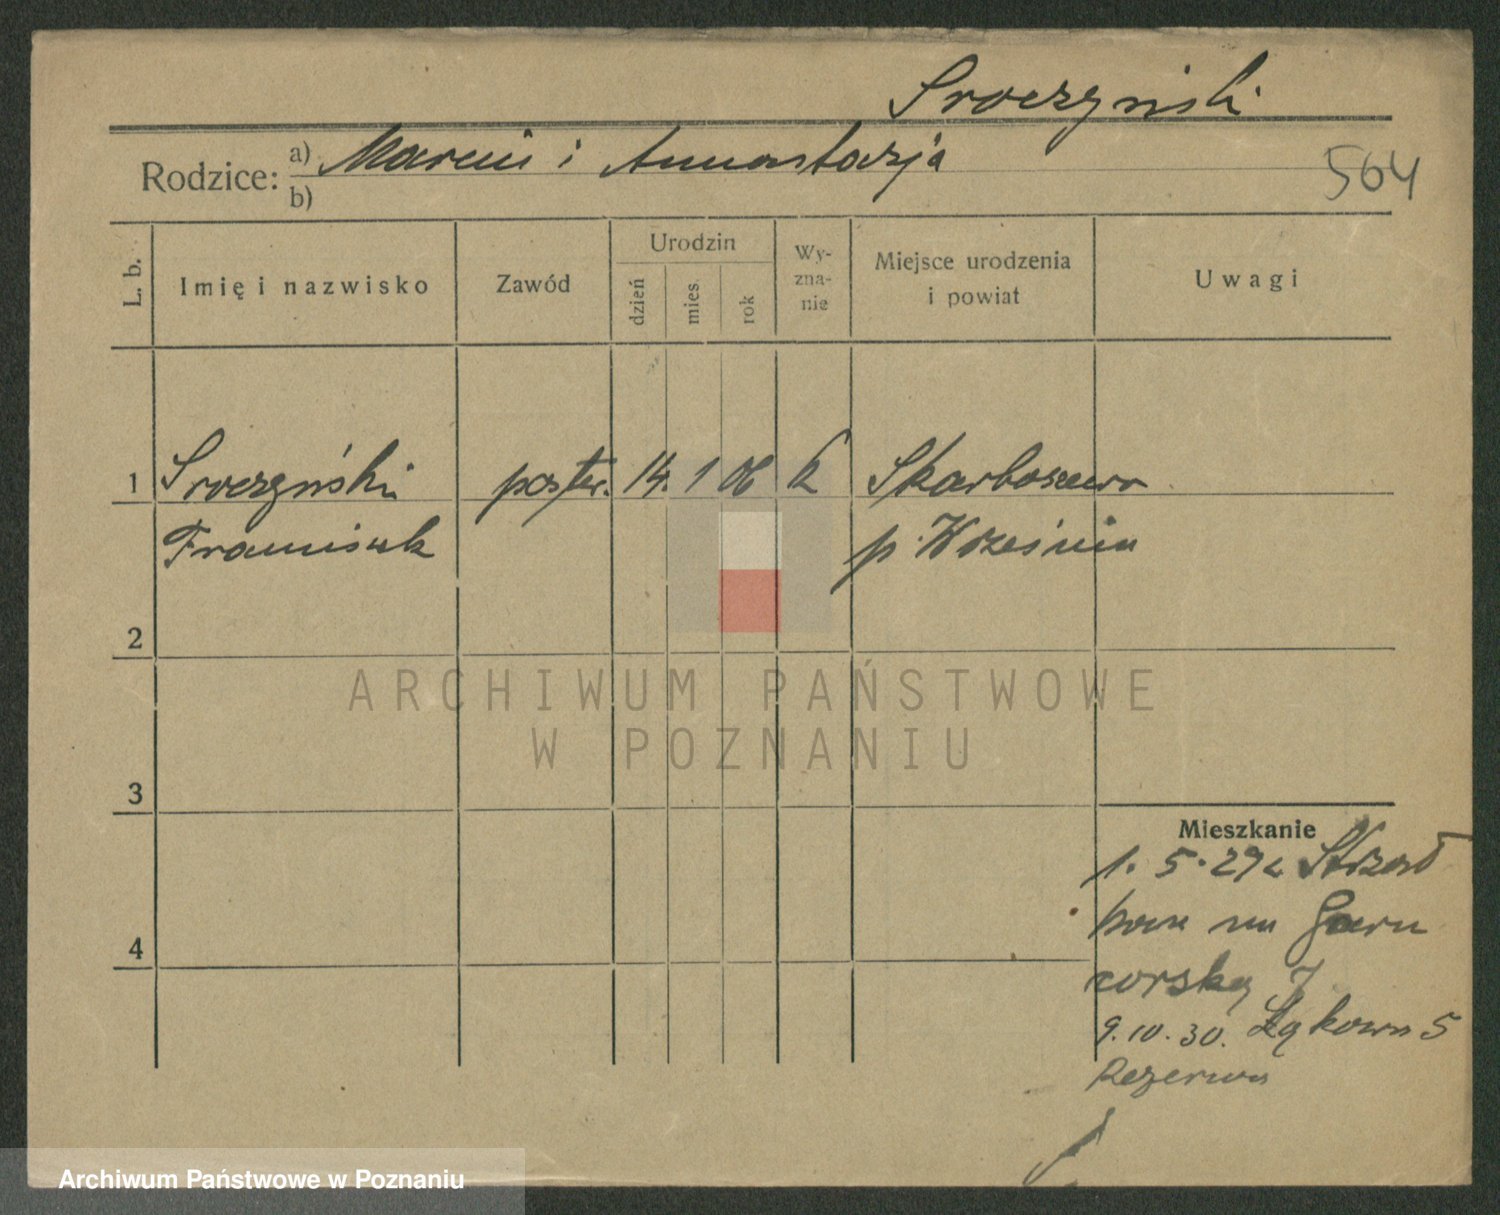 Sroczyński
Rodzice: a) Marcin i Annastazja
b)
564
L. b.
Imię i nazwisko
Zawód
Urodzin
dzień
mies.
rok
Wy-
zna-
nie
Miejsce urodzenia
i powiat
Uwagi
1 Sroczyński poster. 14. 1 06 k Skarboszewo
Franciszek p. Września
2
ARCHIWUM PAŃSTWOWE
W POZNANIU
3
Mieszkanie
1. 5. 29 z
4
9.10.30. Łąkowa 5
Rezerwa
Archiwum Państwowe w Poznaniu